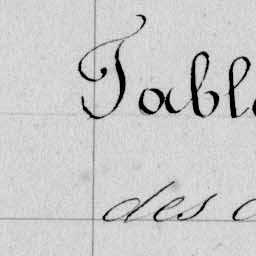 Tabl
des